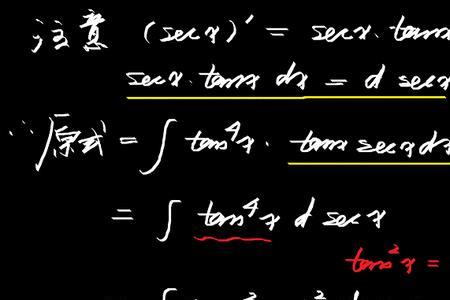 注意 (sec x)' = sec x · tan x
sec x · tan x dx = d sec x
∴ 原式 = ∫ tan⁴x · tan x sec x dx
= ∫ tan⁴x d sec x
tan²x =